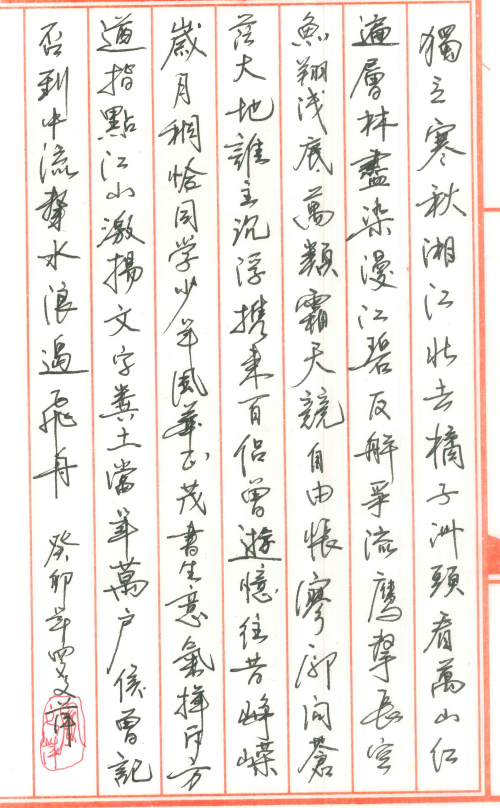 獨立寒秋湘江北去橘子洲頭看萬山红
遍層林盡染漫江碧百舸爭流鷹擊長空
魚翔浅底萬類霜天競自由悵寥廓问蒼
茫大地誰主沉浮携来百侣曾遊憶往昔崢嶸
歲月稠恰同学少年風華正茂書生意氣揮斥方
遒指點江山激揚文字糞土當年萬户侯曾記
否到中流擊水浪遏飛舟 癸卯年